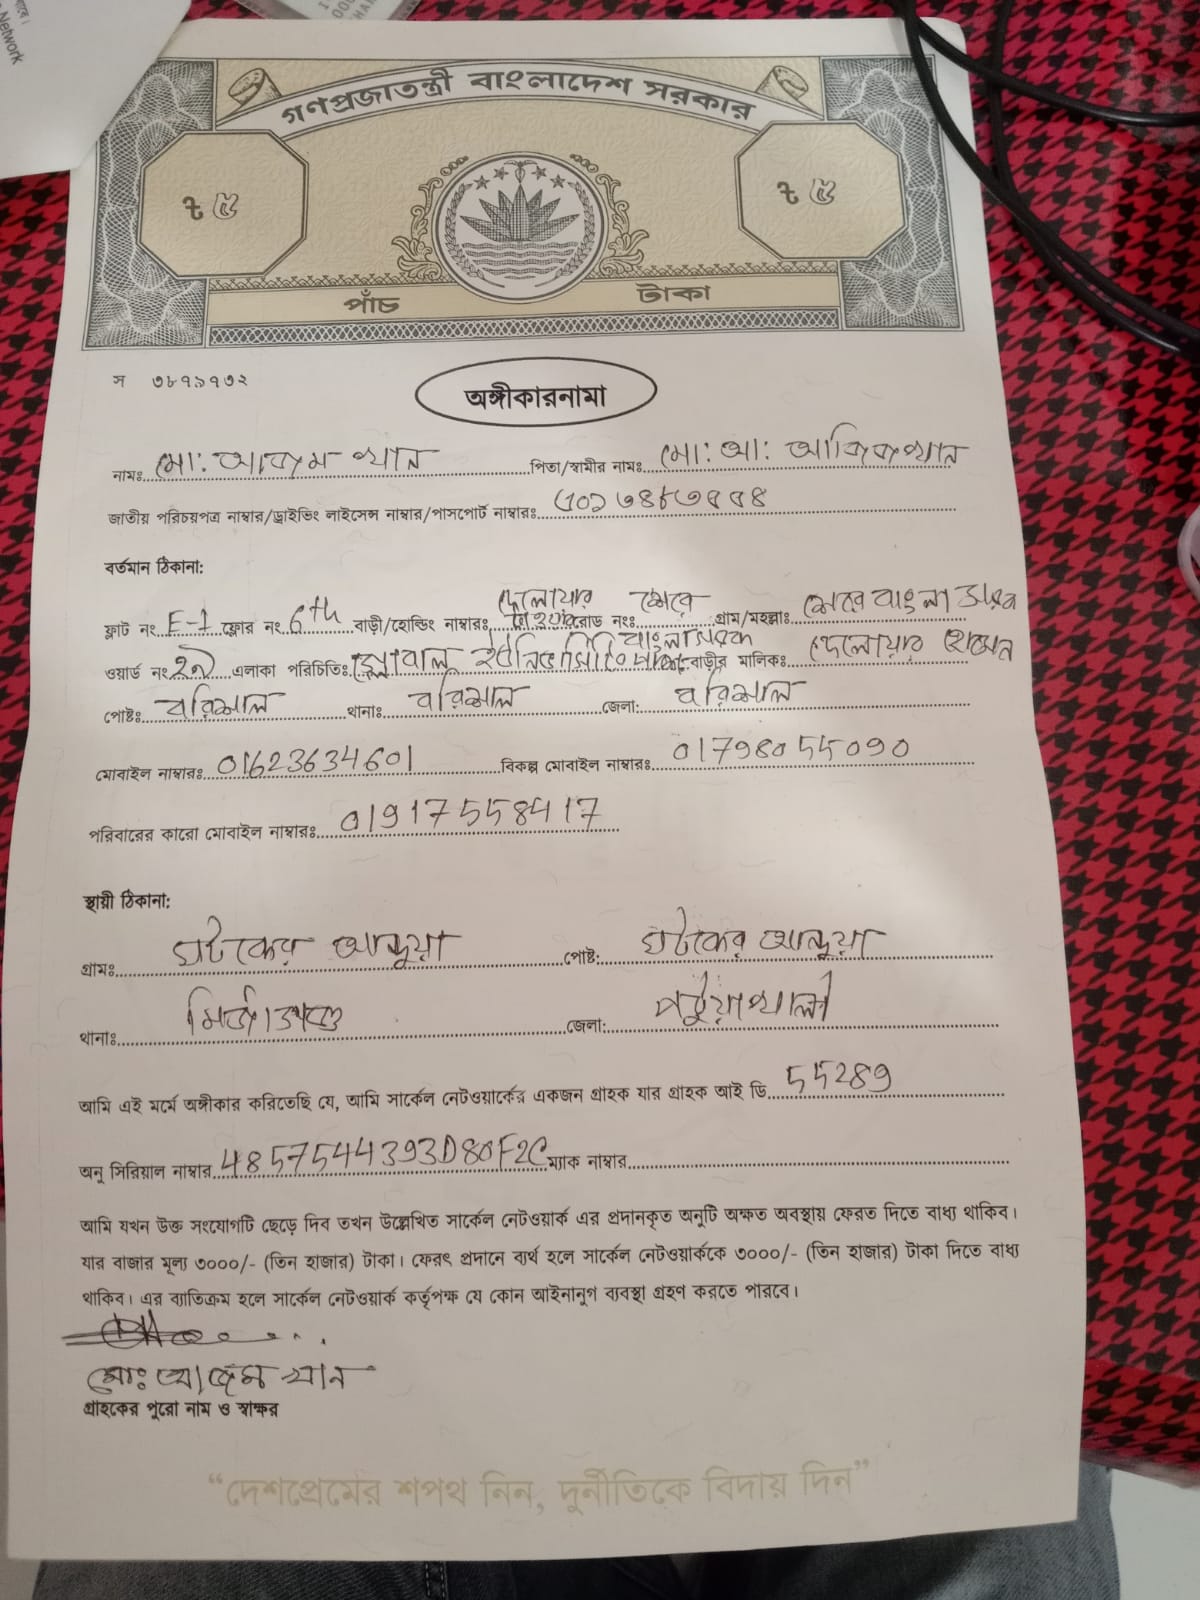 Network
গণপ্রজাতন্ত্রী বাংলাদেশ সরকার
৳ ৫ ৳ ৫
পাঁচ টাকা
স ৩৮৭১৭৩২
অঙ্গীকারনামা
নামঃ মো: আজম খান পিতা/স্বামীর নাম: মো: আ: আজিজ খান
জাতীয় পরিচয়পত্র নাম্বার/ড্রাইভিং লাইসেন্স নাম্বার/পাসপোর্ট নাম্বারঃ
বর্তমান ঠিকানা:
ফ্লাট নং E-1 ফ্লোর নং 6th বাড়ী/হোল্ডিং নাম্বারঃ দেলোয়ার রোড নংঃ শেরে গ্রাম/মহল্লাঃ শেরে বাংলা সড়ক
বাংলা সড়ক
ওয়ার্ড নং এলাকা পরিচিতিঃ গ্লোবাল ইউনিভার্সিটির বাড়ীর মালিকঃ দেলোয়ার হোসেন
পোষ্টঃ বরিশাল থানাঃ বরিশাল জেলা: বরিশাল
মোবাইল নাম্বারঃ 01623634601 বিকল্প মোবাইল নাম্বারঃ 01798055090
পরিবারের কারো মোবাইল নাম্বারঃ 01917558417
স্থায়ী ঠিকানা:
গ্রামঃ ঘটকের আন্দুয়া পোষ্ট: ঘটকের আন্দুয়া
থানাঃ মির্জাগঞ্জ জেলা: পটুয়াখালী
আমি এই মর্মে অঙ্গীকার করিতেছি যে, আমি সার্কেল নেটওয়ার্কের একজন গ্রাহক যার গ্রাহক আই ডি 55289
অনু সিরিয়াল নাম্বার 4857544393D80F2C ম্যাক নাম্বার
আমি যখন উক্ত সংযোগটি ছেড়ে দিব তখন উল্লেখিত সার্কেল নেটওয়ার্ক এর প্রদানকৃত অনুটি অক্ষত অবস্থায় ফেরত দিতে বাধ্য থাকিব।
যার বাজার মূল্য ৩০০০/- (তিন হাজার) টাকা। ফেরৎ প্রদানে ব্যর্থ হলে সার্কেল নেটওয়ার্ককে ৩০০০/- (তিন হাজার) টাকা দিতে বাধ্য
থাকিব। এর ব্যতিক্রম হলে সার্কেল নেটওয়ার্ক কর্তৃপক্ষ যে কোন আইনানুগ ব্যবস্থা গ্রহণ করতে পারবে।
মোঃ আজম খান
গ্রাহকের পুরো নাম ও স্বাক্ষর
“দেশপ্রেমের শপথ নিন, দুর্নীতিকে বিদায় দিন”